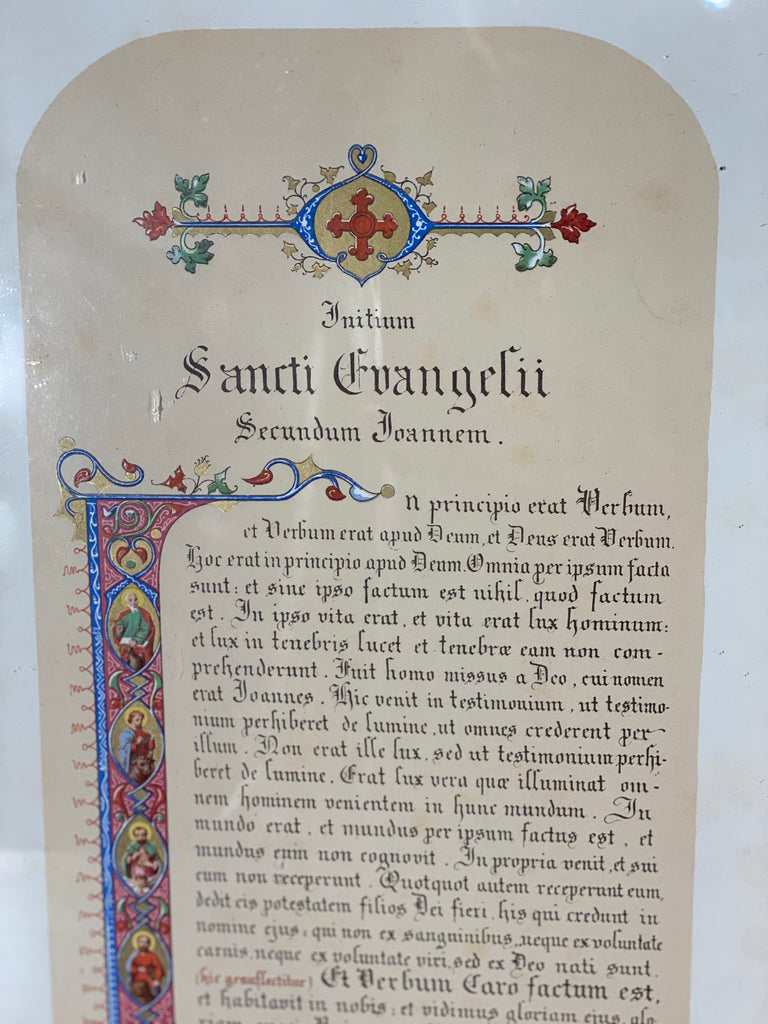 Initium
Sancti Evangelii
Secundum Joannem.
In principio erat Verbum,
et Verbum erat apud Deum, et Deus erat Verbum.
Hoc erat in principio apud Deum. Omnia per ipsum facta
sunt: et sine ipso factum est nihil, quod factum
est. In ipso vita erat, et vita erat lux hominum:
et lux in tenebris lucet et tenebræ eam non com-
prehenderunt. Fuit homo missus a Deo, cui nomen
erat Joannes. Hic venit in testimonium, ut testimo-
nium perhiberet de lumine, ut omnes crederent per
illum. Non erat ille lux, sed ut testimonium perhi-
beret de lumine. Erat lux vera quæ illuminat om-
nem hominem venientem in hunc mundum. In
mundo erat, et mundus per ipsum factus est, et
mundus eum non cognovit. In propria venit, et sui
eum non receperunt. Quotquot autem receperunt eum,
dedit eis potestatem filios Dei fieri, his qui credunt in
nomine ejus: qui non ex sanguinibus, neque ex voluntate
carnis, neque ex voluntate viri, sed ex Deo nati sunt.
(hic genuflectitur) Et Verbum Caro factum est,
et habitavit in nobis: et vidimus gloriam ejus, glo-